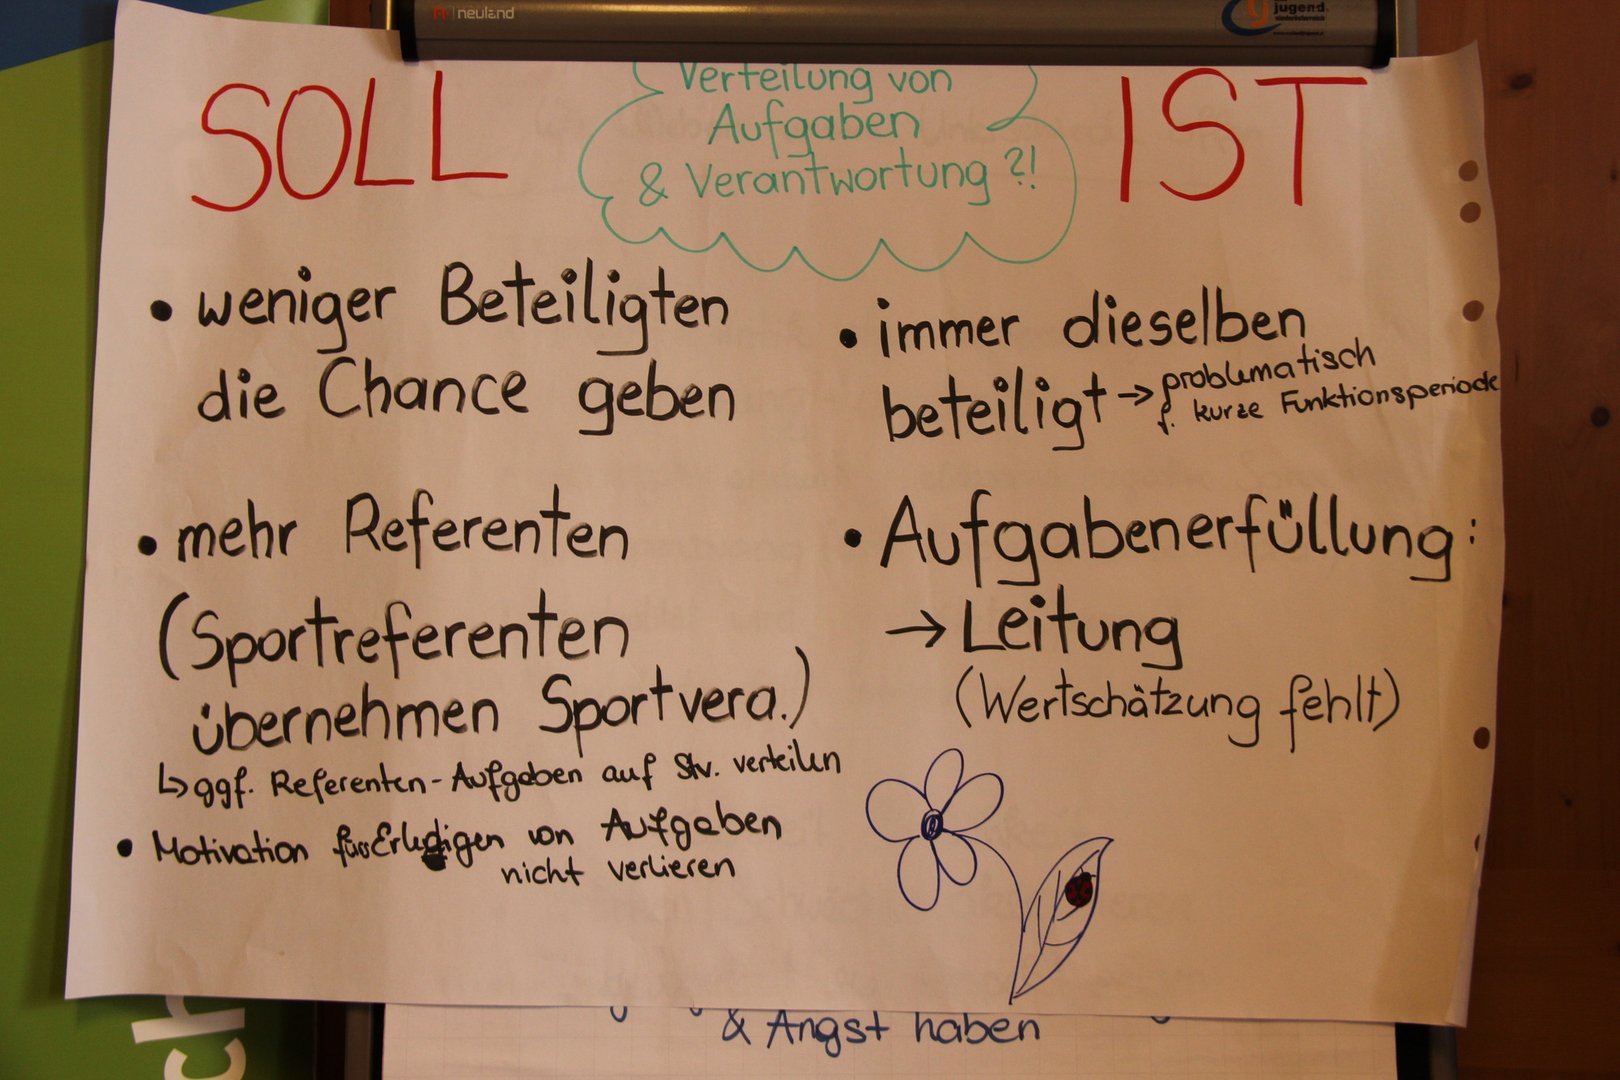 neuland
jugend
niederösterreich
SOLL
Verteilung von
Aufgaben
& Verantwortung ?!
IST
• weniger Beteiligten
die Chance geben
• mehr Referenten
(Sportreferenten
übernehmen Sportvera.)
↳ ggf. Referenten-Aufgaben auf Stv. verteilen
• Motivation fürs Erledigen von Aufgaben
nicht verlieren
• immer dieselben
beteiligt → problematisch
f. kurze Funktionsperiode
• Aufgabenerfüllung:
→ Leitung
(Wertschätzung fehlt)
& Angst haben
ch